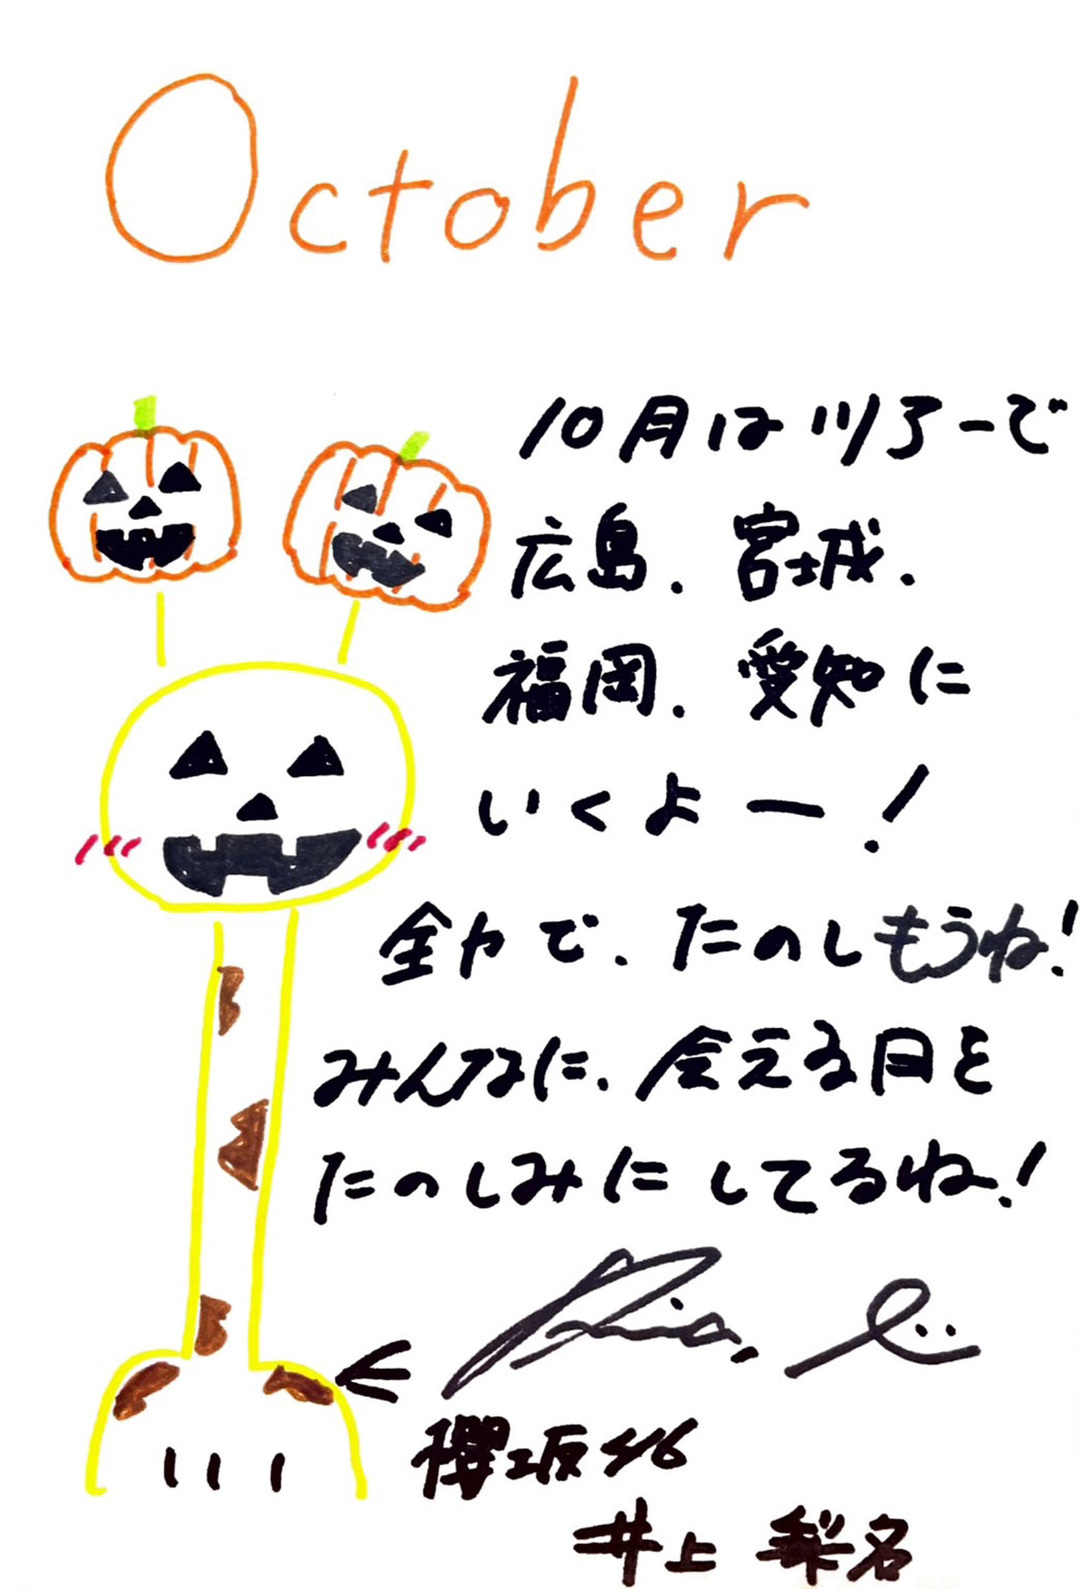 October
10月はツアーで
広島、宮城、
福岡、愛知に
いくよー!
全力で、たのしもうね!
みんなに、会える日を
たのしみにしてるね!
櫻坂46
井上 梨名